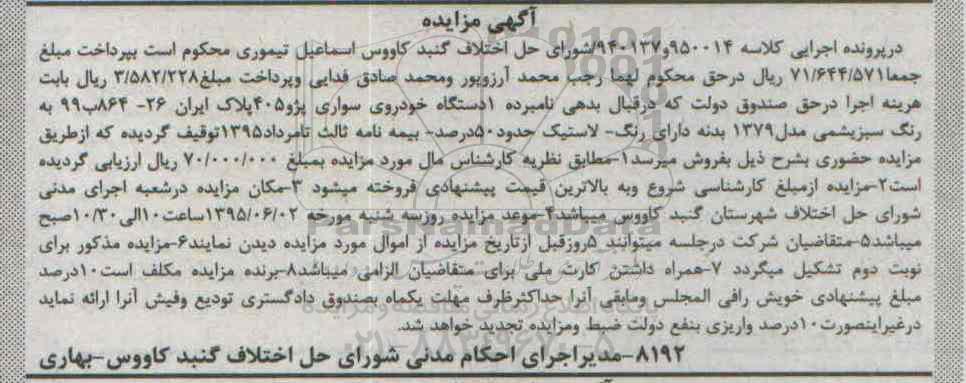 آگهی مزایده
درپرونده اجرایی کلاسه ۹۵۰۰۱۴و۹۴۰۱۳۷/شورای حل اختلاف گنبد کاووس اسماعیل تیموری محکوم است بپرداخت مبلغ
جمعا۷۱/۶۴۴/۵۷۱ ریال درحق محکوم لهما رجب محمد آرزوپور ومحمد صادق فدایی وپرداخت مبلغ۳/۵۸۲/۲۲۸ ریال بابت
هزینه اجرا درحق صندوق دولت که درقبال بدهی نامبرده ۱دستگاه خودروی سواری پژو۴۰۵پلاک ایران ۲۶- ۸۶۴ب۹۹ به
رنگ سبزیشمی مدل۱۳۷۹ بدنه دارای رنگ- لاستیک حدود۵۰درصد- بیمه نامه ثالث تامرداد۱۳۹۵توقیف گردیده که ازطریق
مزایده حضوری بشرح ذیل بفروش میرسد۱-مطابق نظریه کارشناس مال مورد مزایده بمبلغ ۷۰/۰۰۰/۰۰۰ ریال ارزیابی گردیده
است۲-مزایده ازمبلغ کارشناسی شروع وبه بالاترین قیمت پیشنهادی فروخته میشود ۳-مکان مزایده درشعبه اجرای مدنی
شورای حل اختلاف شهرستان گنبد کاووس میباشد۴-موعد مزایده روزسه شنبه مورخه ۱۳۹۵/۰۶/۰۲ساعت۱۰الی۱۰/۳۰صبح
میباشد۵-متقاضیان شرکت درجلسه میتوانند ۵روزقبل ازتاریخ مزایده از اموال مورد مزایده دیدن نمایند۶-مزایده مذکور برای
نوبت دوم تشکیل میگردد ۷-همراه داشتن کارت ملی برای متقاضیان الزامی میباشد۸-برنده مزایده مکلف است۱۰درصد
مبلغ پیشنهادی خویش رافی المجلس ومابقی آنرا حداکثرظرف مهلت یکماه بصندوق دادگستری تودیع وفیش آنرا ارائه نماید
درغیراینصورت۱۰درصد واریزی بنفع دولت ضبط ومزایده تجدید خواهد شد.
۸۱۹۲-مدیراجرای احکام مدنی شورای حل اختلاف گنبد کاووس-بهاری
ParsNamadData
۰۲۱-۸۸۳۴۹۶۷۰-۵